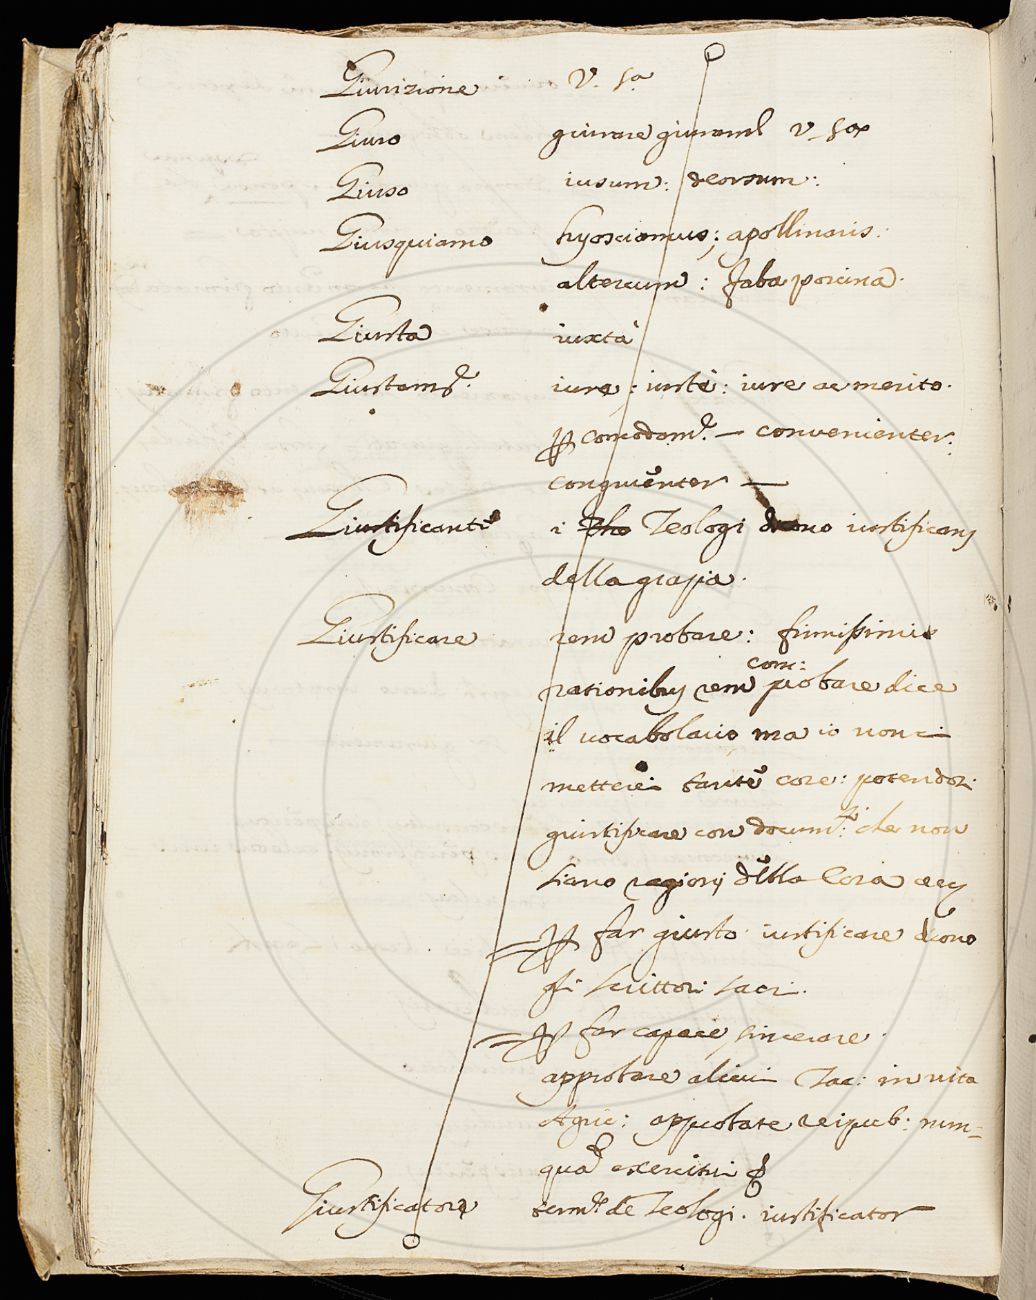 Giurizione v. sa
Giuro giurare giuramt v. sa
Giuso iusum: deorsum:
Giusquiamo hyosciamus; apollinaris:
altercum: faba porcina.
Giusta iuxtà
Giustamte. iure: iustè: iure ac merito.
comodamte. — convenienter:
congruenter —
Giustificante i Teologi dicono iustificans
della grazia.
Giustificare rem probare: firmissimis
rationibus rem com: probare dice
il vocabolario ma io non ci
metterei tante cose: potendosi
giustificare con documti. che non
siano ragioni della cosa
far giusto iustificare dicono
gli scrittori sacri.
far capace sincerare.
approbare alicui Tac: in vita
Agric: approbate reipub: num=
quã exercitui
Giustificatore termne. de Teologi. iustificator